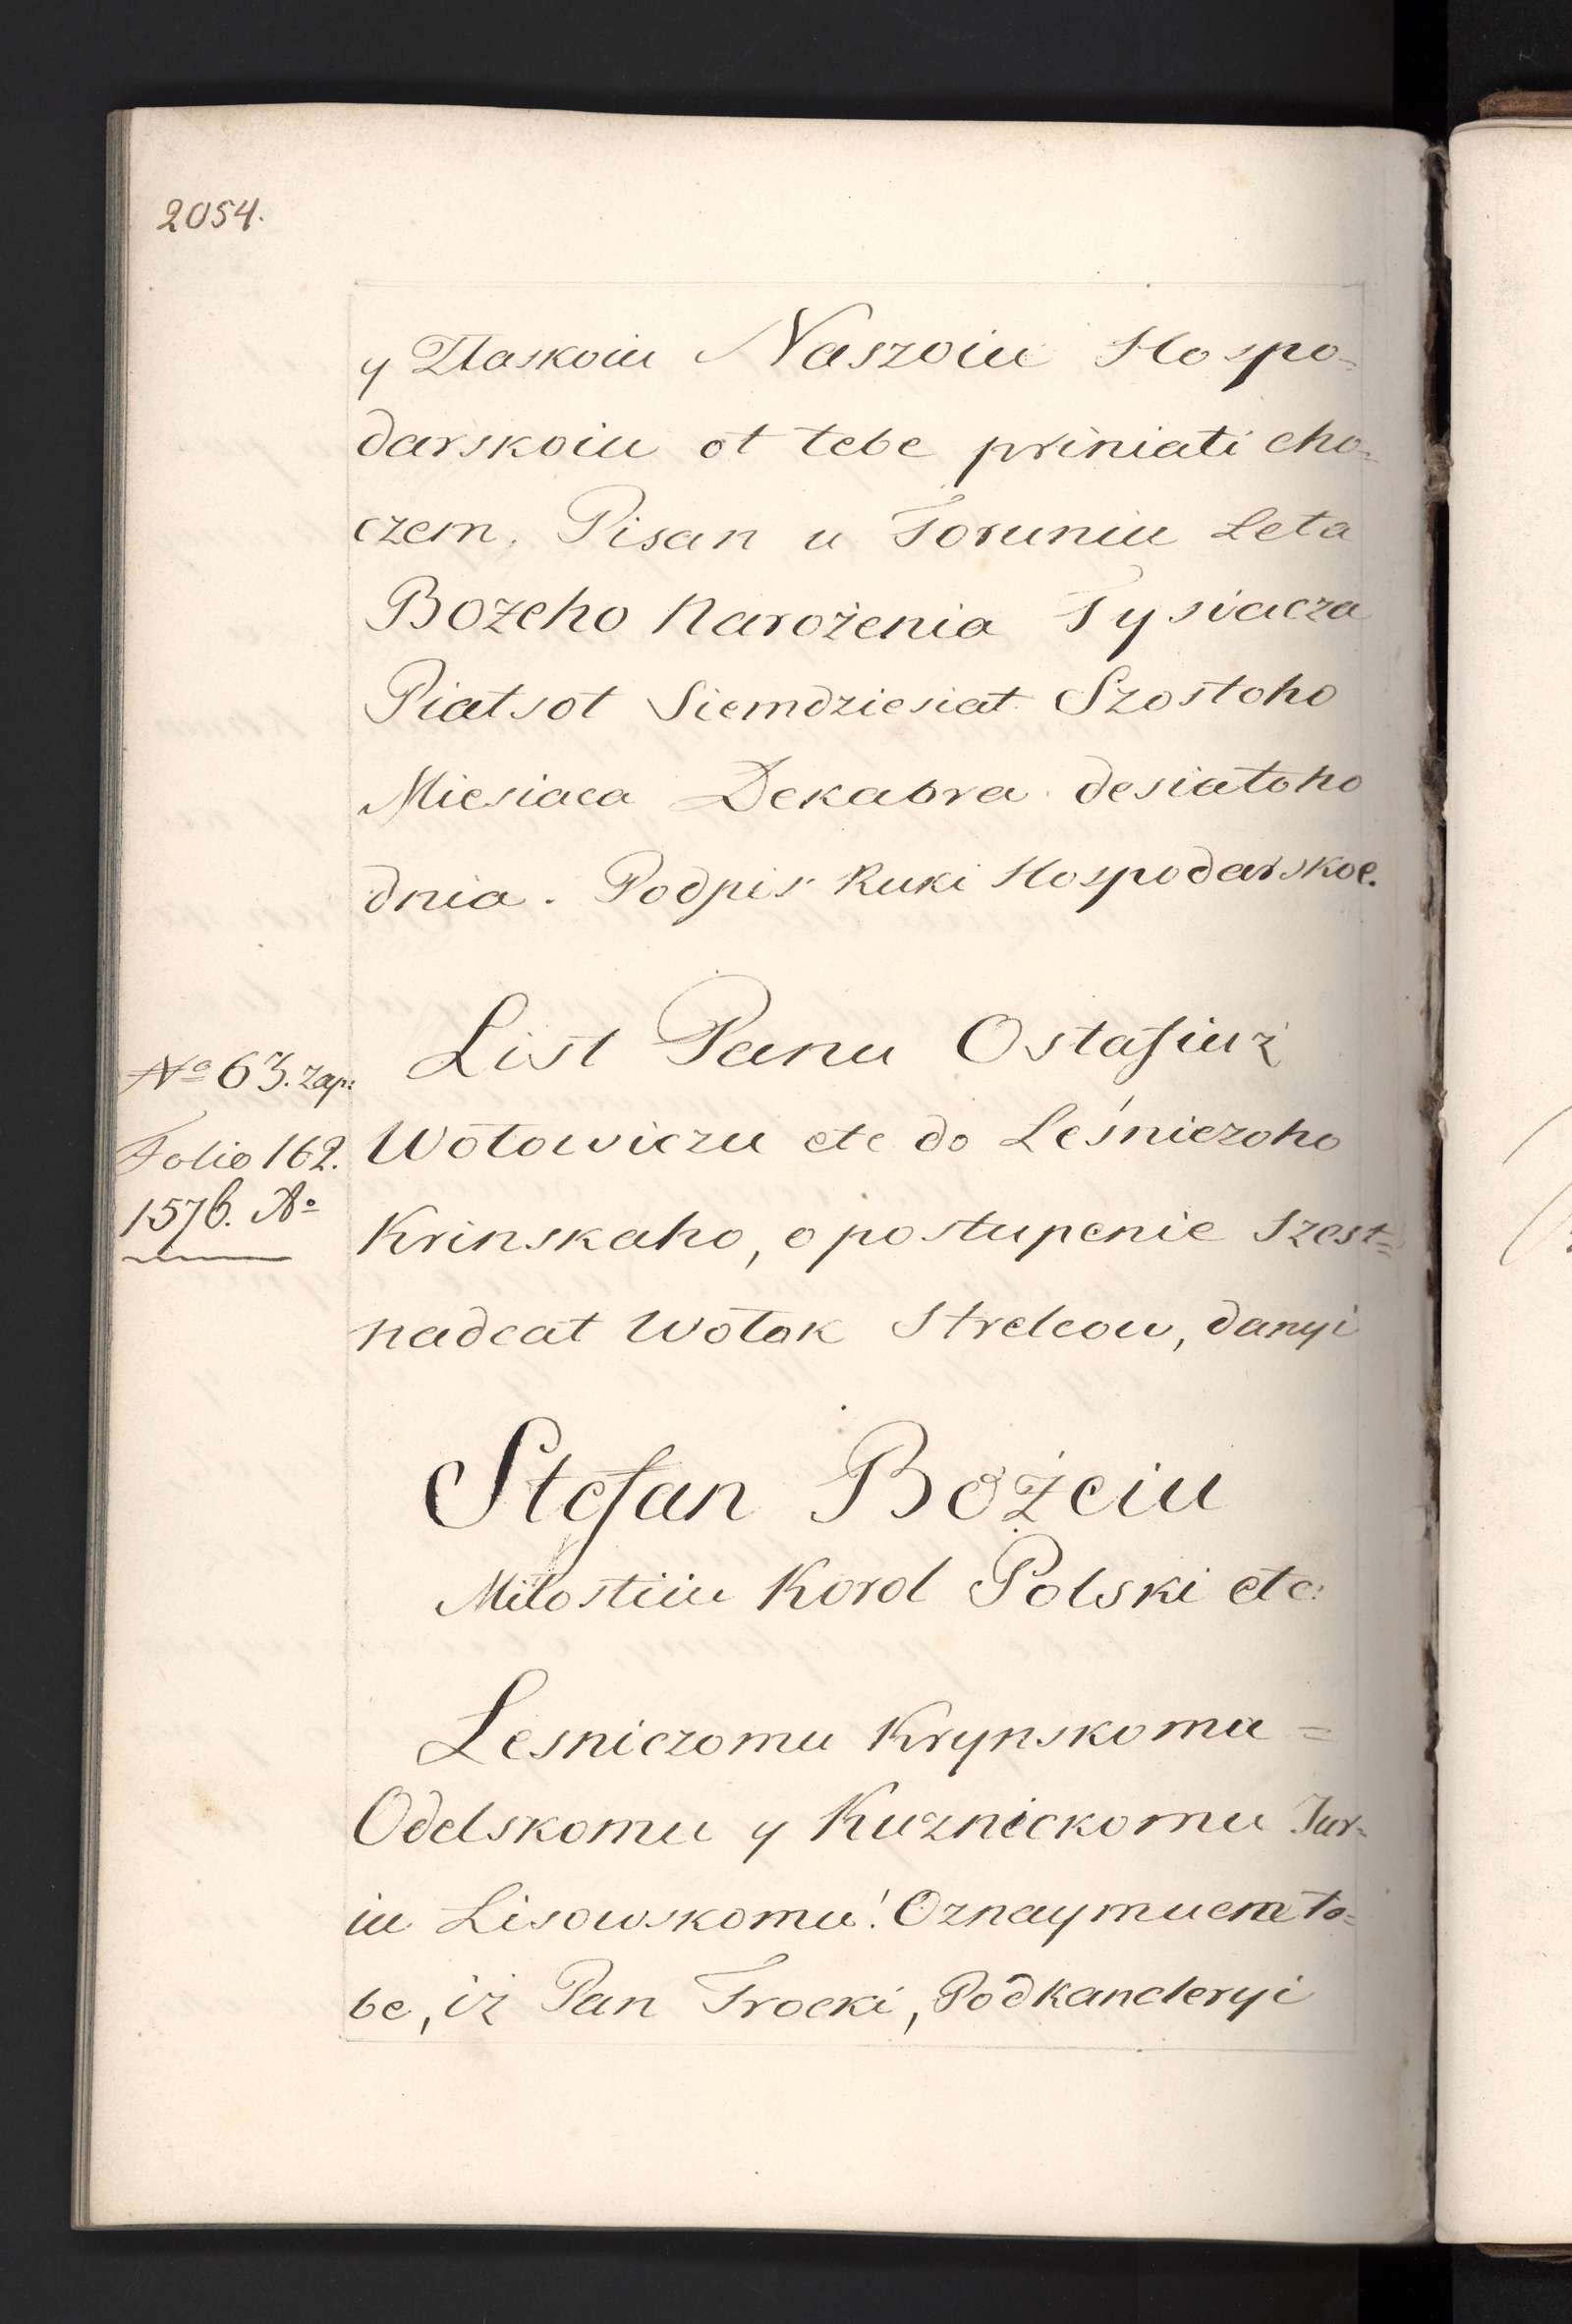 2054.
y Złaskoiu Naszoiu Hospo=
darskoiu ot tebe priniati cho=
czem. Pisan u Toruniu Leta
Bożeho Narożenia Tysiacza
Piatsot Siemdziesiat Szostoho
Miesiaca Dekabra desiatoho
dnia. Podpis Ruki Hospodarskoe.
List Panu Ostafiuż
Nº 63. zap:
Folio 162.
1576. Aº
Wołowiczu etc do Leśniczoho
Krinskaho, o postupenie Szest=
nadcat Wołok Strelcow, danyi
Stefan Bożeiu
Miłostiiu Korol Polski etc:
Lesniczomu Krynskomu =
Odelskomu y Kuznickomu Jur=
iu Lisowskomu! Oznaymuem to=
be, iż Pan Trocki, Podkancleryi